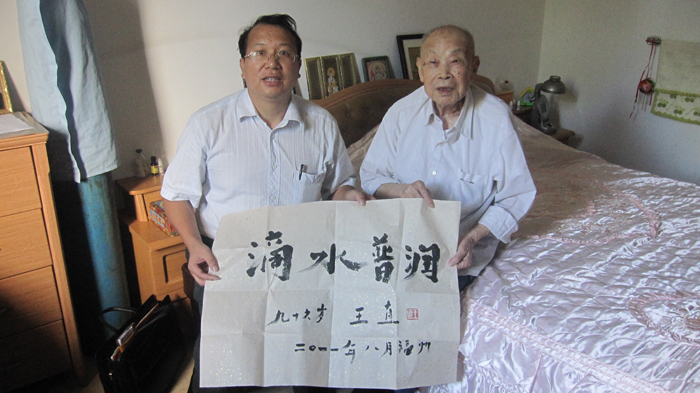 滴水普润
九十六岁 王直
二〇一一年八月福州